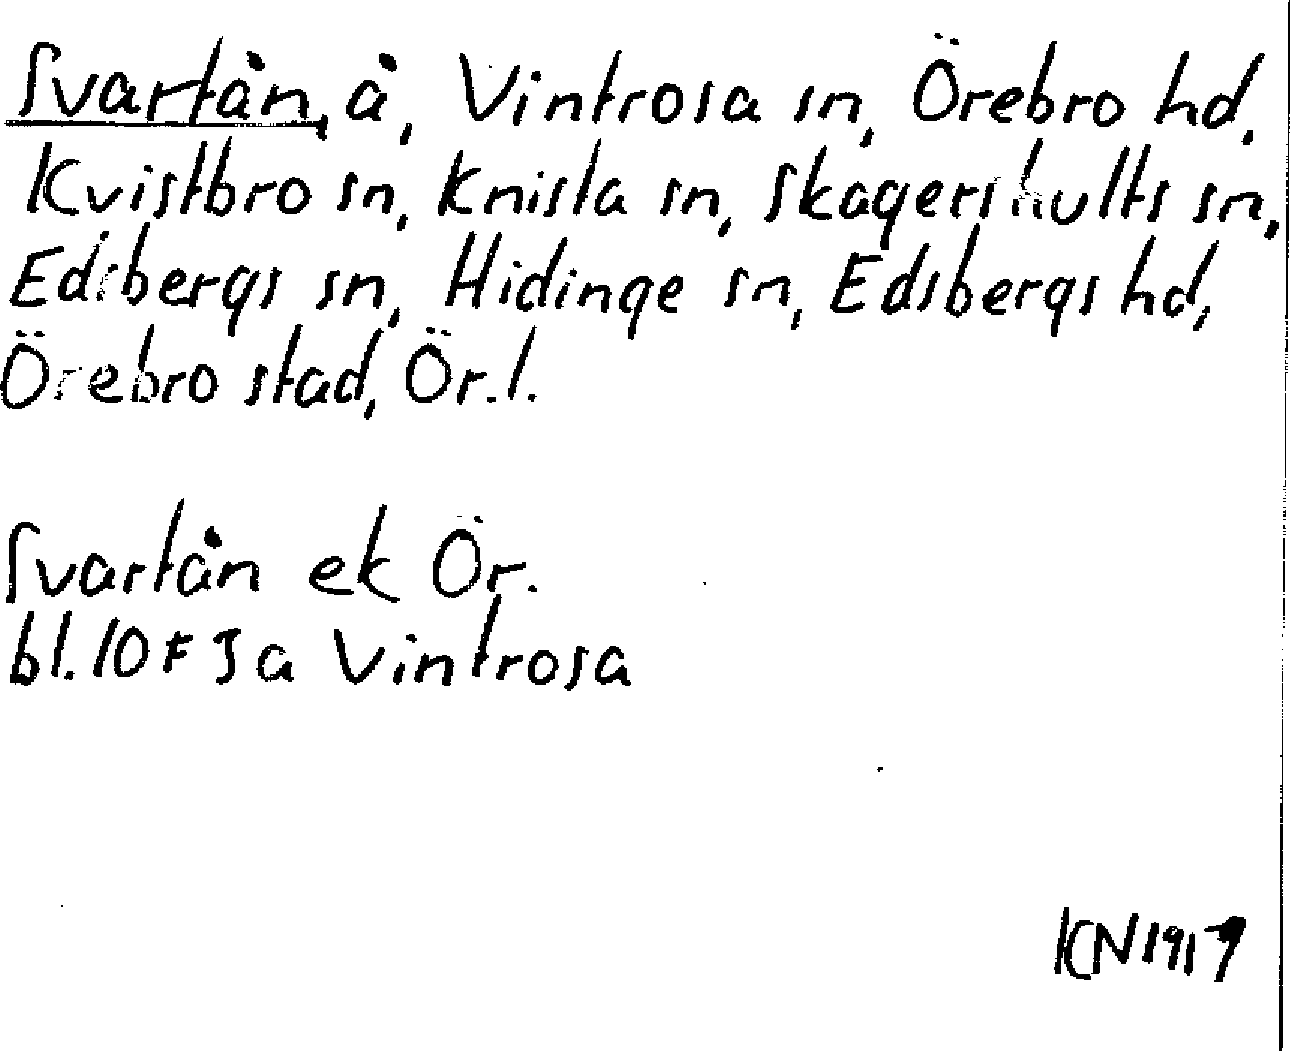 Svartån, å, Vintrosa sn, Örebro hd,
Kvistbro sn, Knista sn, Skagershults sn,
Edsbergs sn, Hidinge sn, Edsbergs hd,
Örebro stad, Ör.l.
Svartån ek Ör.
bl. 10 F 3 a Vintrosa